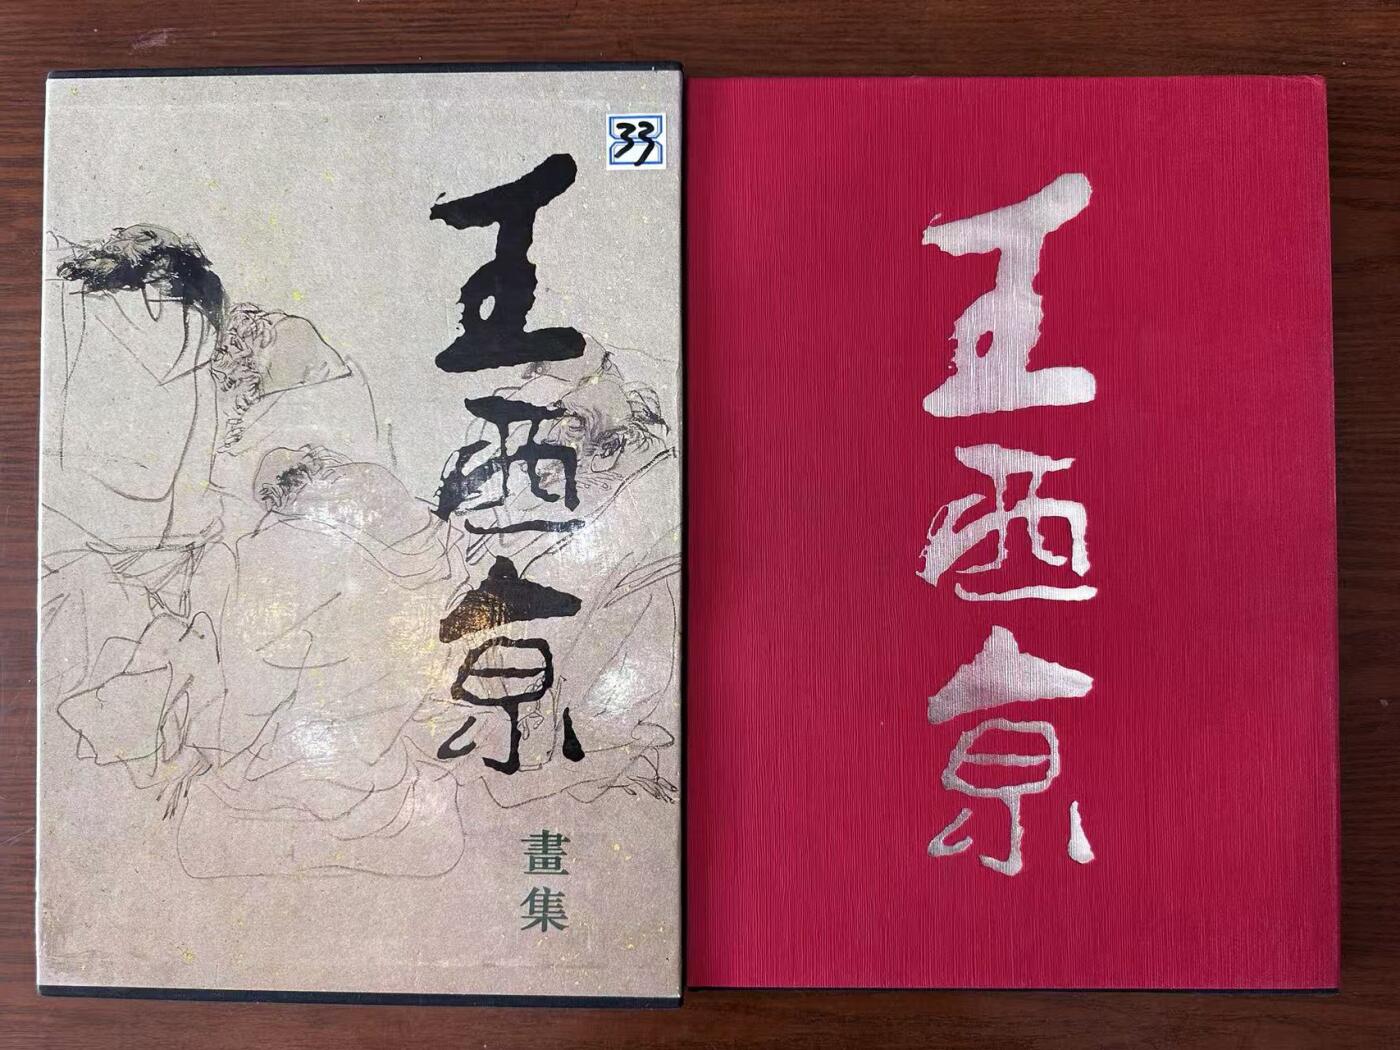 33
王西京
畫集
王西京